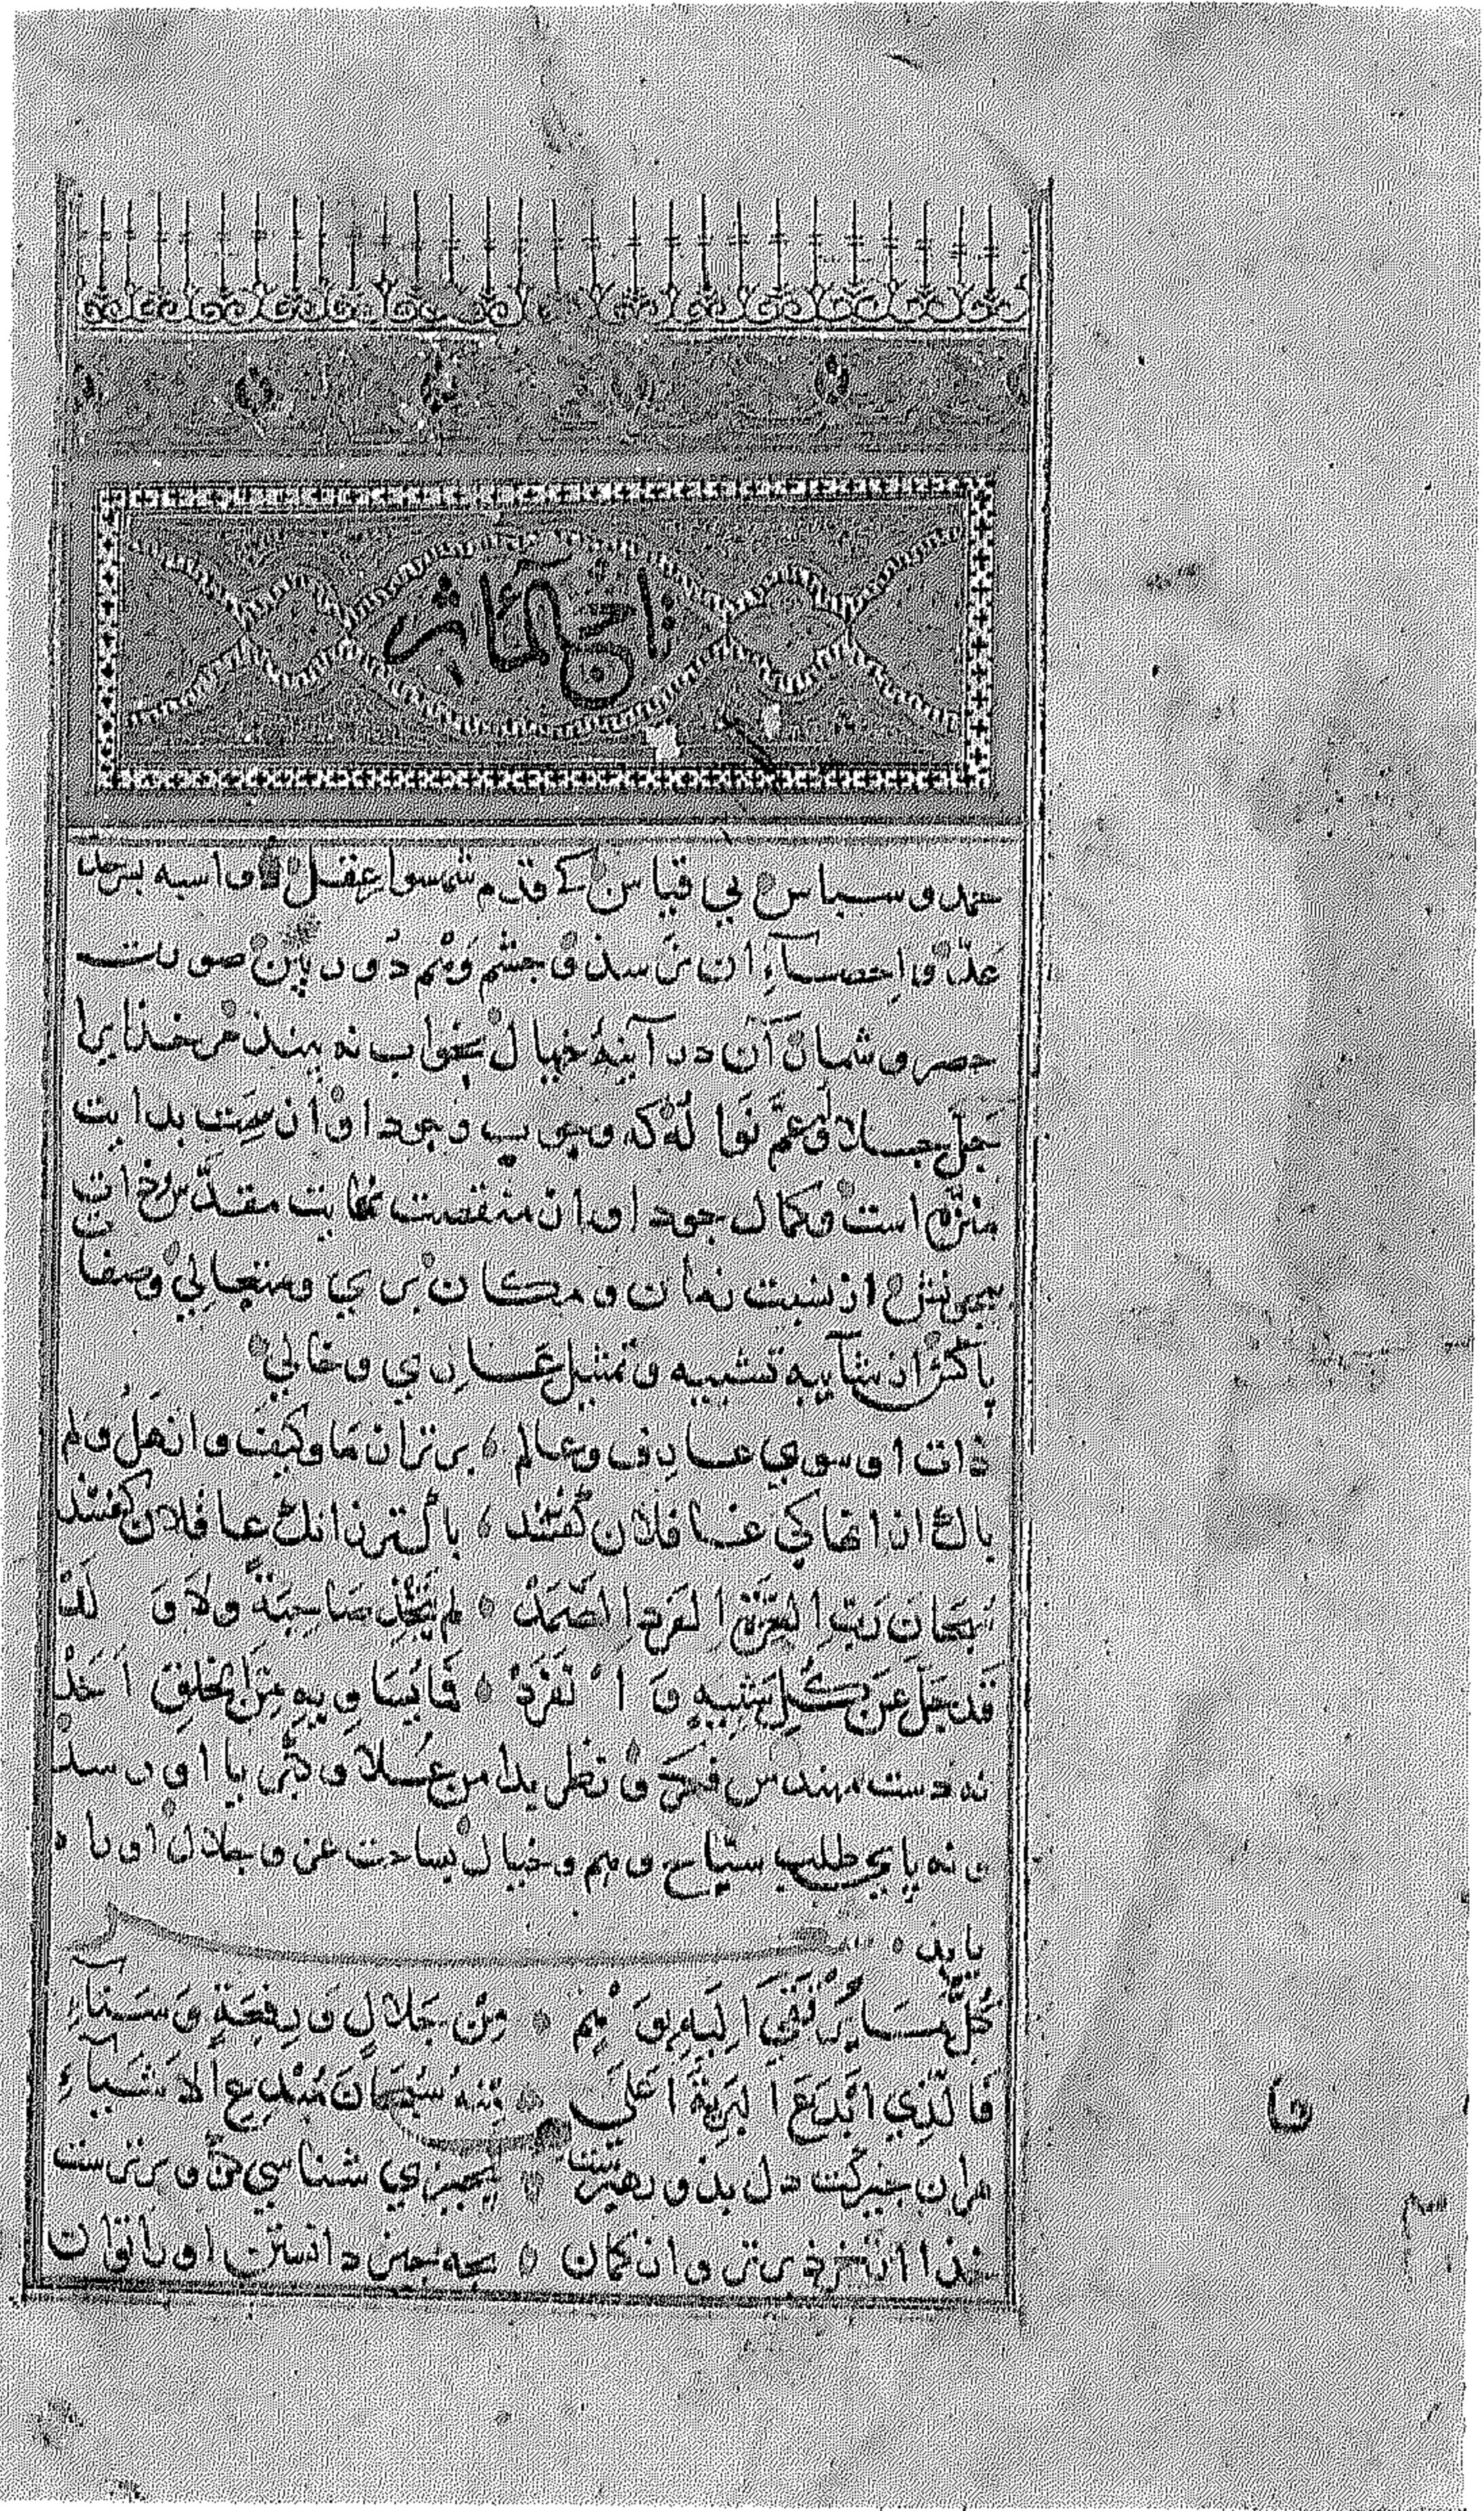 تاج المآثر
حمد و سباس بي قياس كي قدم شهسوار عقل و واسبه بسرحد
عدّ و احصآء ان نرسذ و جشم وهم دوربين صورت
حصر و شمار آن در آينه خيال بخواب نه بينذ مر خذايرا
جل جلاله و عمّ نواله كه وجوب وجود او از سمت بدايت
منزّه است و كمال جود او از منقصت نهايت مقدّس و ذات
بيجونش از نسبت زمان و مكان بري و متعالي و صفات
باكش از شآيبه تشبيه و تمثيل عاري و خالي
ذات او سوي عارف و عالم ٥ برتر از ما و كيف و از هل و لم
باك از انها كي غافلان كفتند ٥ باكتر زانك عاقلان كفتند
سُبحان رَبّ العزّة الفرد الصّمد ٥ لم يتّخذ صَاحبَةً وَلا وَلَد
قَد جَلّ عَن كُلّ شَبيهٍ وَانفَرَد ٥ فمَا يُسَاويه مِنَ الخلق اَحَد
نه دست مهندس فكر و نظر بدامن علا و كبريا او رسد
و نه باي طلب سيّاح وهم و خيال بساحت عز و جلال او راه
يابد ٥
كُلّمَا يُرتَقى اِلَيه بوَهْمٍ ٥ مِنْ جَلالٍ وَ رفعَةٍ وَ سَنآءٍ
فَالّذي اَبْدَعَ البَريّةَ اَعلَى ٥ مِنهُ سُبحَانَ مُبْدِعِ الاَشيآءِ
هران جيزكت دل بذو رهبرست ٥ بجيزي شناسي كزو برترست
خذا از خرذ برتر و از كمان ٥ بجه جيز دانستن او را توان
فا